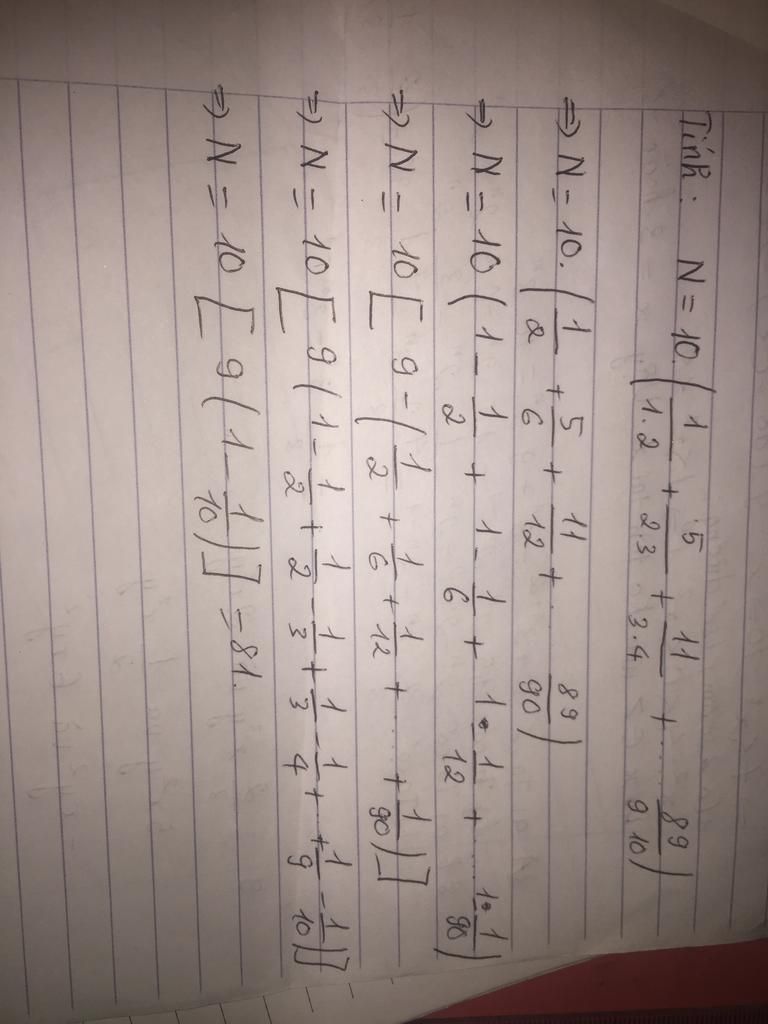 Tính: N = 10.(1/1.2 + 5/2.3 + 11/3.4 + .... 89/9.10)
=> N = 10.(1/2 + 5/6 + 11/12 + ... 89/90)
=> N = 10(1 - 1/2 + 1 - 1/6 + 1 - 1/12 + .... 1 - 1/90)
=> N = 10[9 - (1/2 + 1/6 + 1/12 + .... + 1/90)]
=> N = 10[9(1 - 1/2 + 1/2 - 1/3 + 1/3 - 1/4 + .. + 1/9 - 1/10)]
=> N = 10[9(1 - 1/10)] = 81.